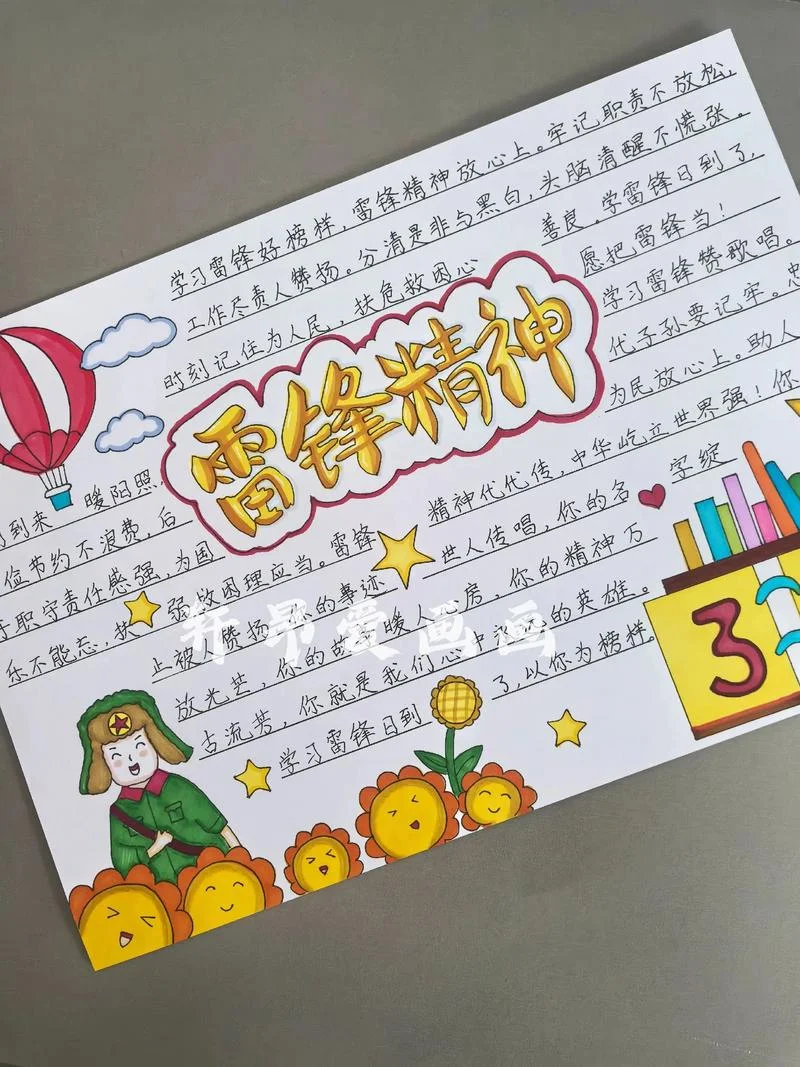 学习雷锋好榜样，雷锋精神放心上。牢记职责不放松，
工作尽责人赞扬。分清是非与黑白，头脑清醒不慌张。
时刻记住为人民，扶危救困心
善良。学雷锋日到了，
愿把雷锋当！
学习雷锋赞歌唱。
代子孙要记牢。忠
为民放心上。助人
雷锋精神
到来 暖阳照，
俭节约不浪费，后
职守责任感强，为国
乐不能忘，扶
弱救困理应当。雷锋
精神代代传，中华屹立世界强！你
止被人赞扬，你的事迹
世人传唱，你的名
字绽
放光芒，你的故
暖人
房，你的精神万
古流芳，你就是我们心中
的英雄。
学习雷锋日到
了，以你为榜样。
3
轩昂爱画画